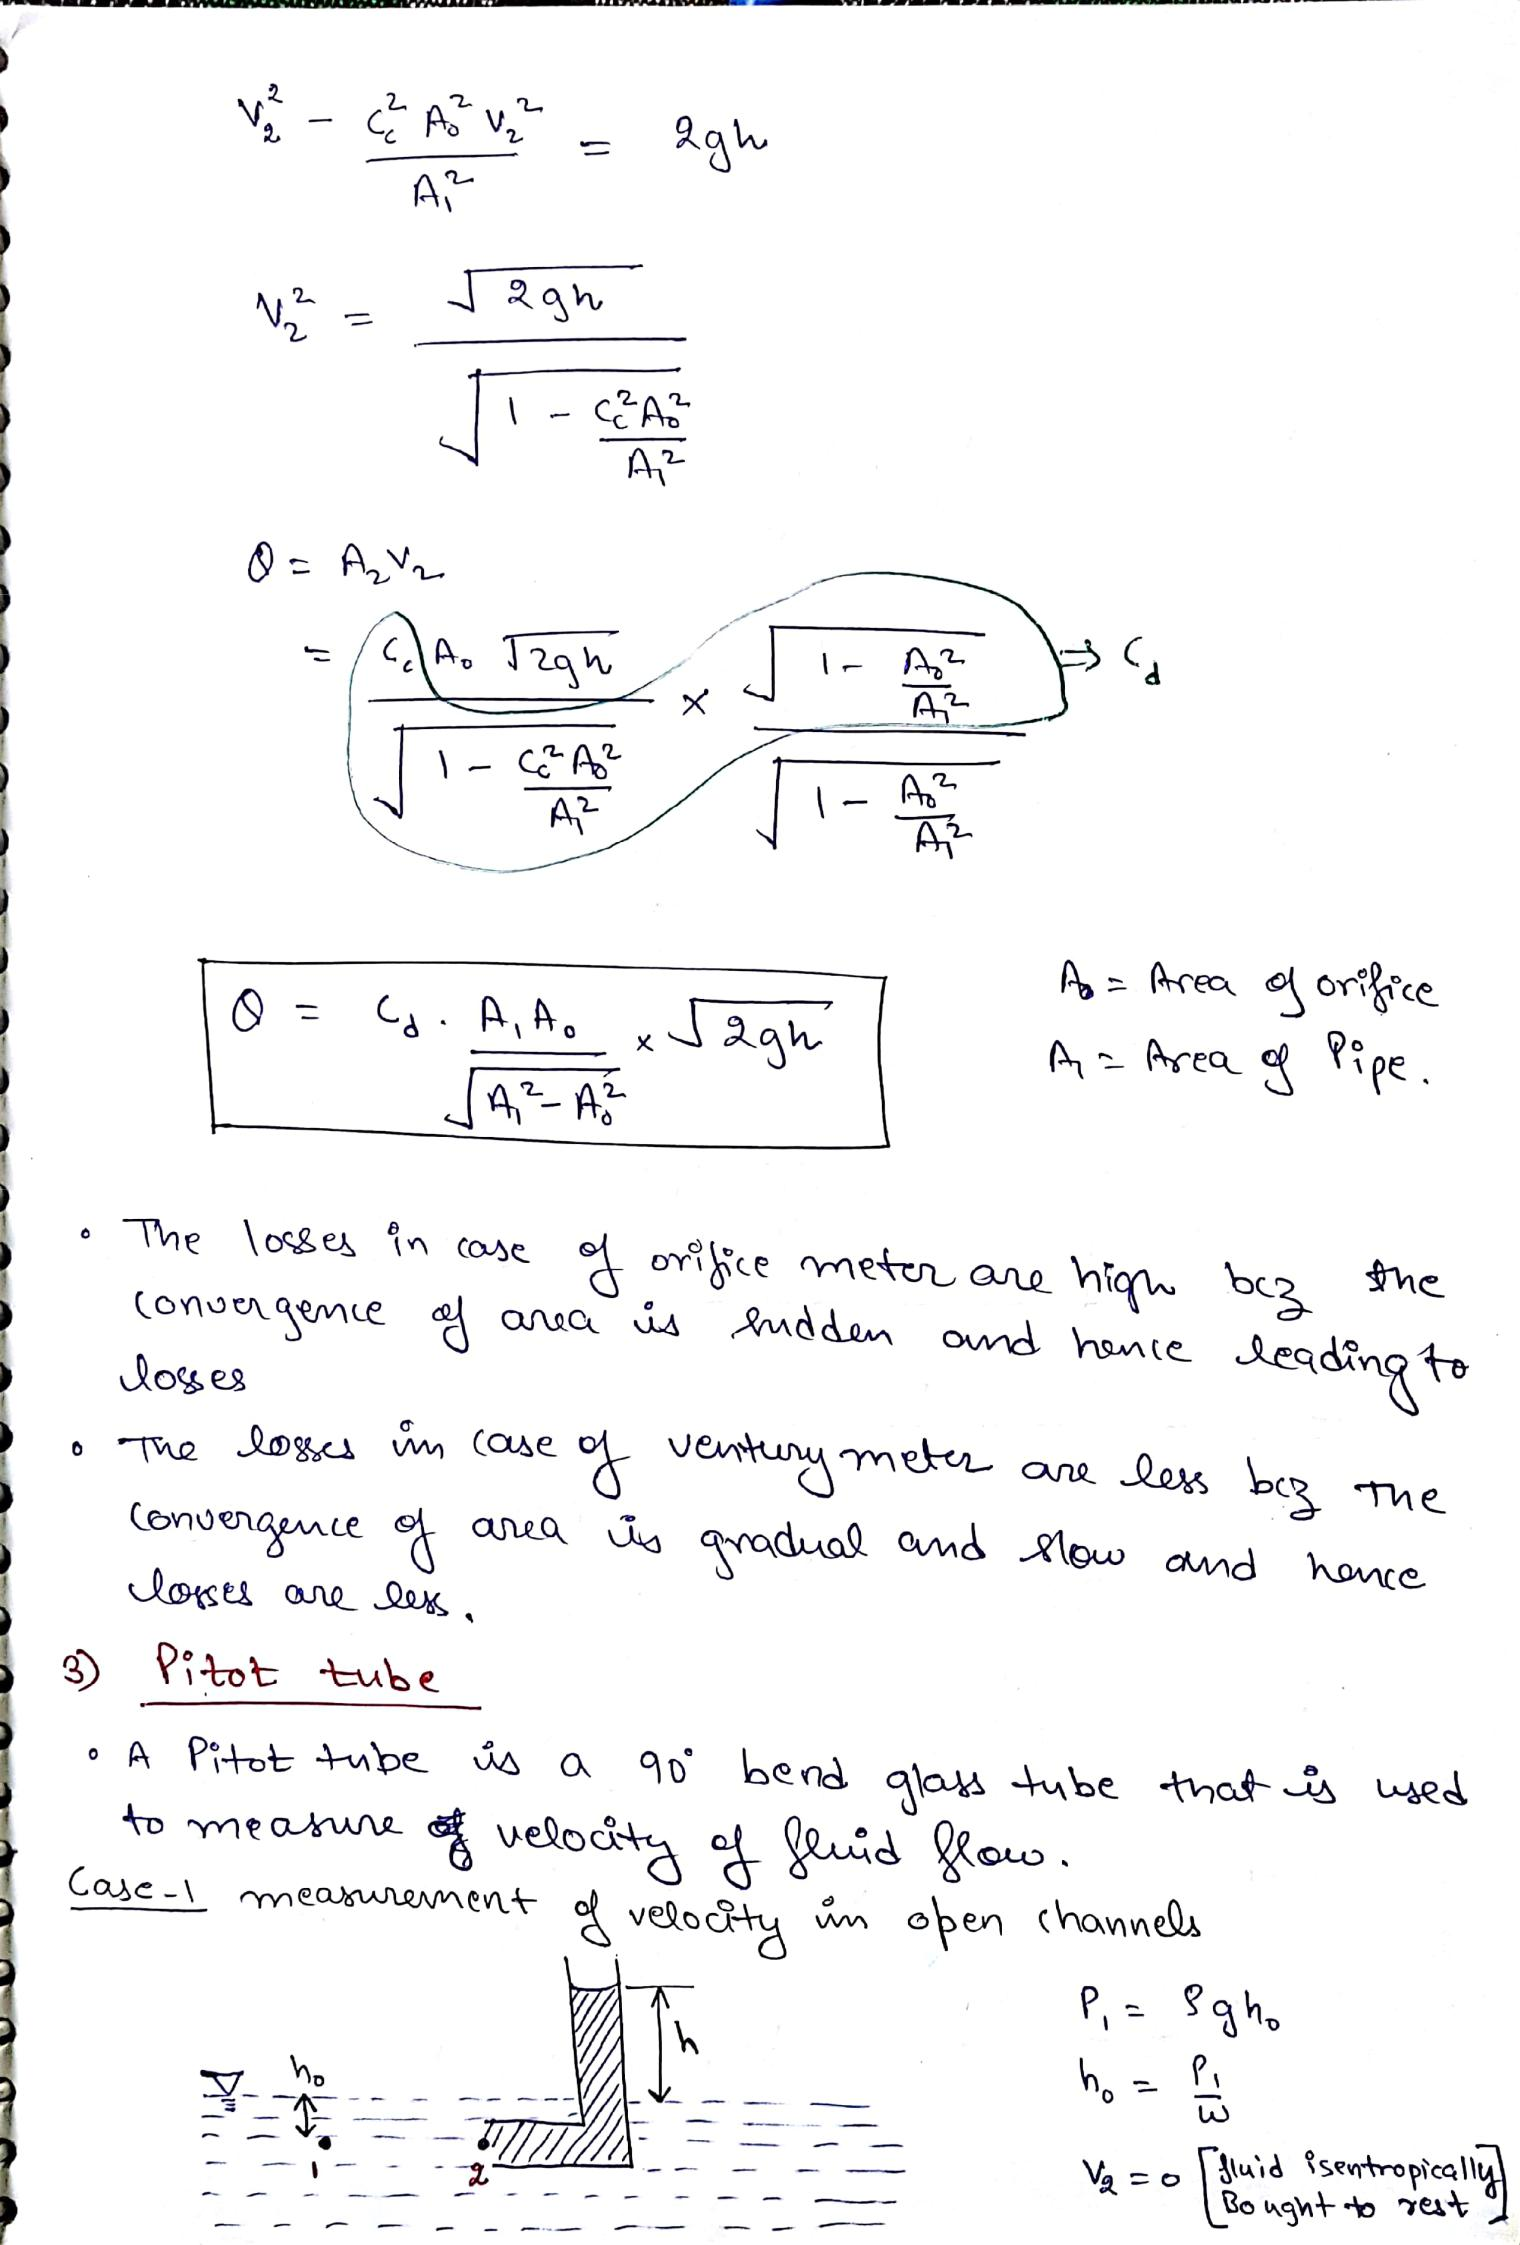 V₂² - Cc² A₀² V₂² / A₁² = 2gh
V₂² = √2gh / √(1 - Cc² A₀² / A₁²)
Q = A₂V₂
= Cc A₀ √2gh / √(1 - Cc² A₀² / A₁²) × √(1 - A₀² / A₁²) / √(1 - A₀² / A₁²) ⇒ Cd
Q = Cd . A₁ A₀ / √(A₁² - A₀²) × √2gh
A₀ = Area of orifice
A₁ = Area of Pipe.
• The losses in case of orifice meter are high bcz the
convergence of area is sudden and hence leading to
losses
• The losses in case of ventury meter are less bcz The
convergence of area is gradual and slow and hence
losses are less.
3) Pitot tube
• A Pitot tube is a 90° bend glass tube that is used
to measure velocity of fluid flow.
Case-1 measurement of velocity in open channels
h
h₀
1
2
P₁ = ρgh₀
h₀ = P₁ / w
V₂ = 0 [fluid isentropically
Bought to rest]